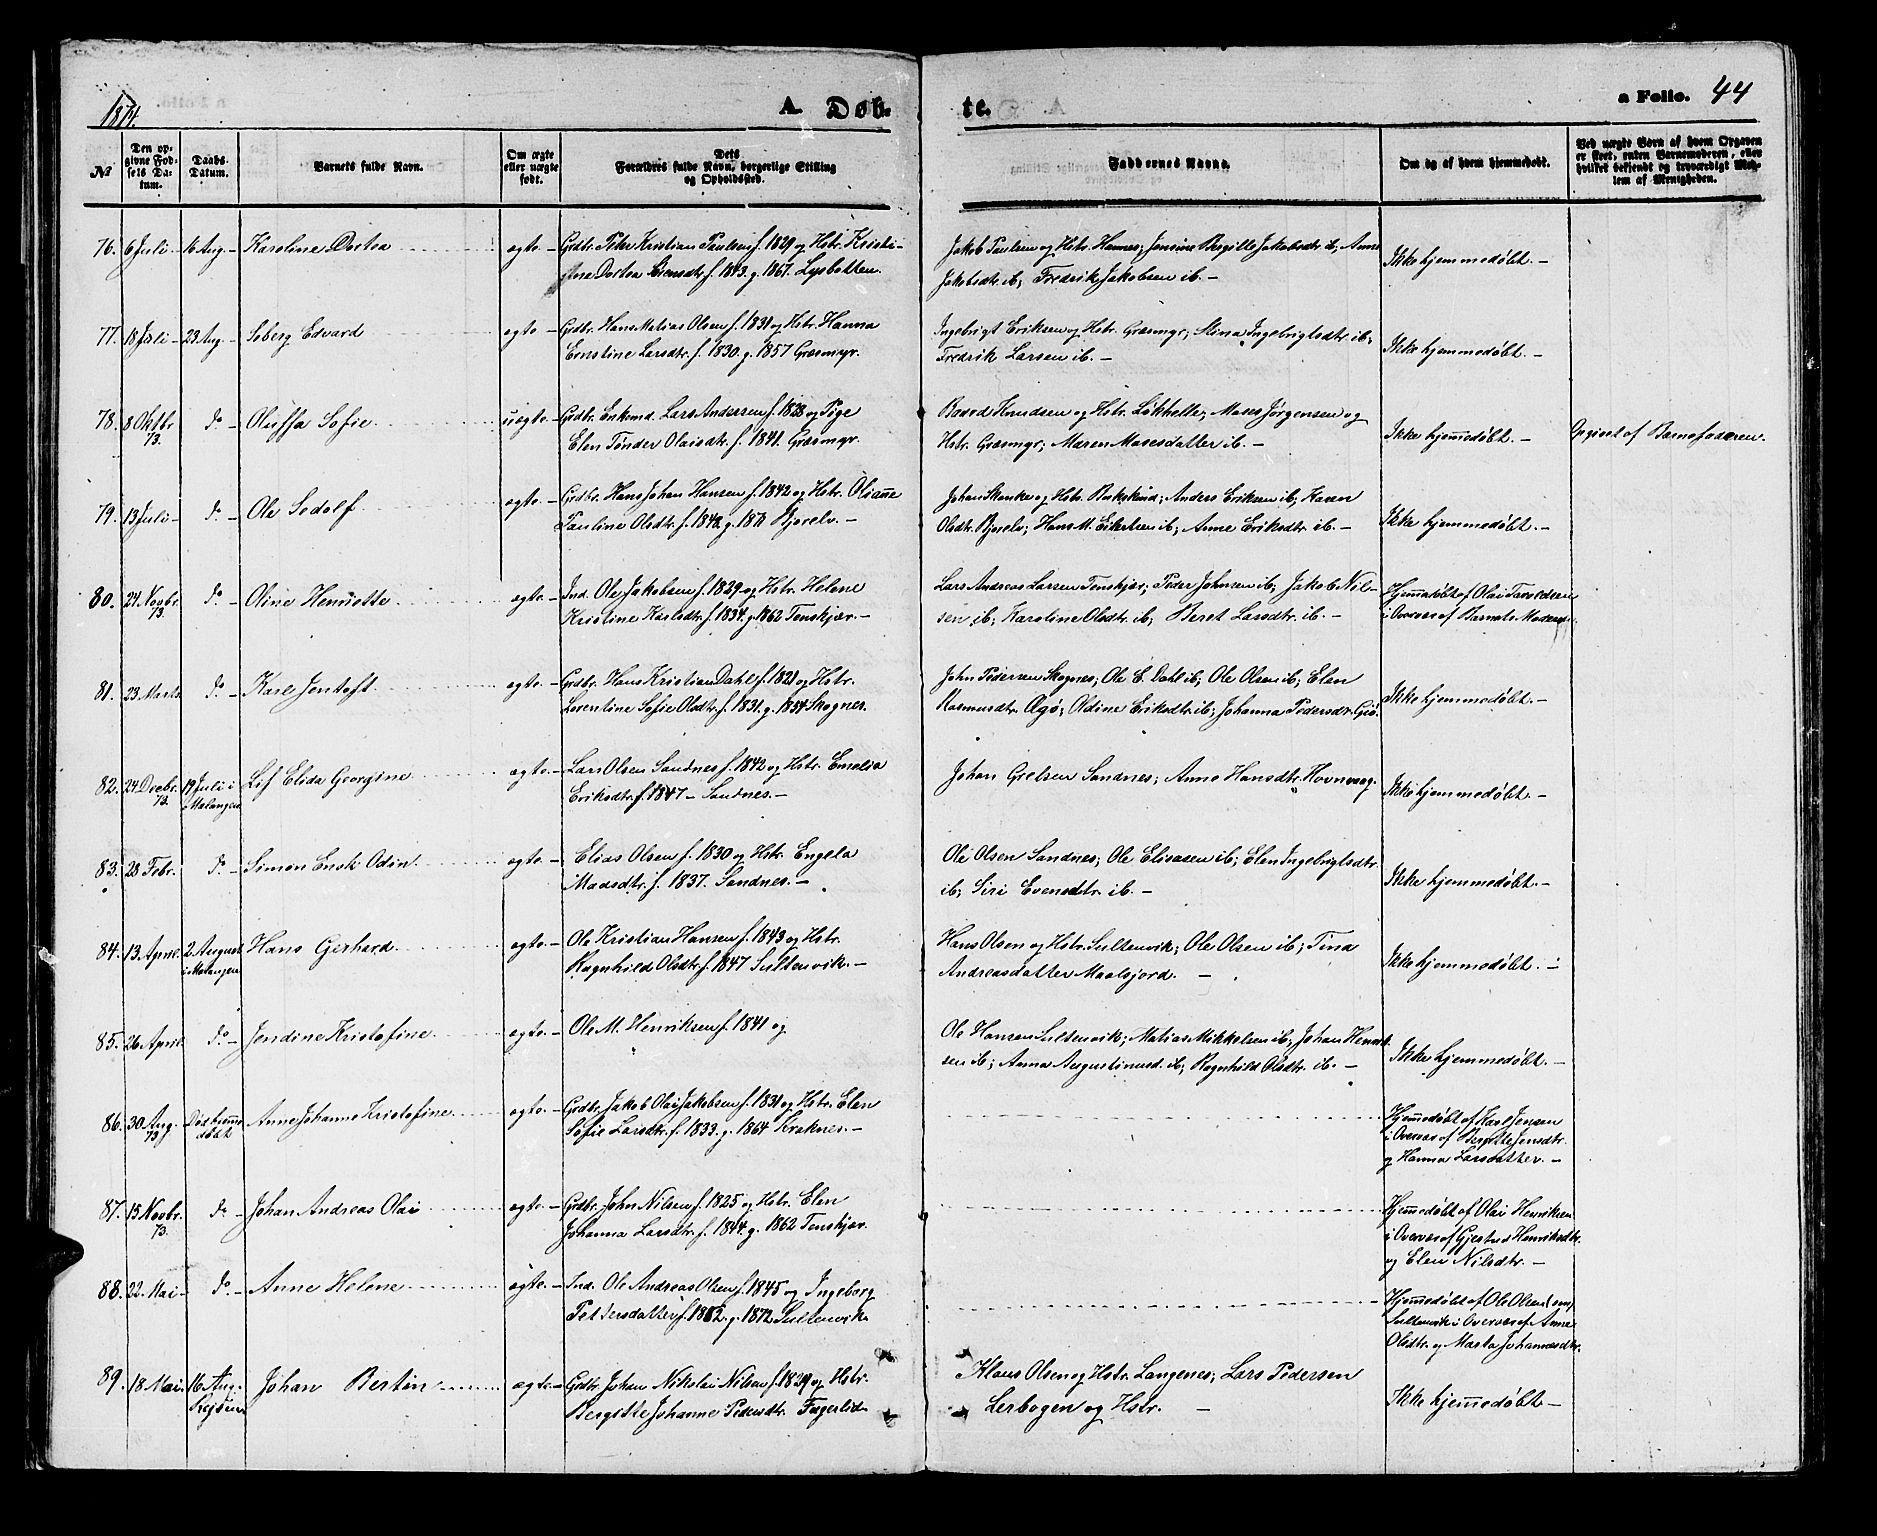 1874.
A. Døb-
te.
a Folio. 44
No
Den op-
givne Fød-
sels Da-
tum.
Daabs-
Datum.
Barnets fulde Navn.
Om ægte
eller uægte
født.
Dets
Forældres fulde Navn, borgerlige Stilling
og Opholdssted.
Faddernes Navne.
Om og af hvem hjemmedøbt.
Ved uægte Børn af hvem Opgaven
er skeet, enten Barnemoderen, eller
hvilket bekjendt og troværdigt Med-
lem af Menigheden.
76. 6 Juli - 16 Aug. - Karoline Dortea ægte - Grdbr. Peter Kristian Paulsen f. 1829 og Hstr. Kristi-
ane Dortea Sørensdtr. f. 1843. g. 1867. Lysbotten.
Jakob Paulsen og Hstr. Hannes; Jensine Bergitte Jakobsdtr. ib; Anne
Jakobsdtr. ib; Fredrik Jakobsen ib. -
Ikke hjemmedøbt. -
77. 18 Juli - 23 Aug. - Søberg Edvard ægte - Grdbr. Hans Matias Olsen f. 1831 og Hstr. Hanna
Ernstine Larsdtr. f. 1830. g. 1857 Græsmyr.
Ingebrigt Eriksen og Hstr. Græsmyr; Stina Ingebrigtsdtr. ib;
Fredrik Larsen ib. -
Ikke hjemmedøbt. -
78. 8 Oktbr. 73. do - Oluffa Sofie uægte - Grdbr. Enkemd. Lars Andersen f. 1828 og Pige
Elen Tønder Olaisdtr. f. 1841. Græsmyr.
Baard Knudsen og Hstr. Løkhelle; Moses Jørgensen og
Hstr. Græsmyr; Maren Mosesdatter ib. -
Ikke hjemmedøbt. -
Opgivet af Barnefaderen.
79. 13 Juli - do - Ole Sedolf ægte - Grdbr. Hans Johan Hansen f. 1842 og Hstr. Olianne
Pauline Olsdtr. f. 1842 g. 1871 Bjorelv. -
Johan Skanke og Hstr. Bukskind; Anders Eriksen ib; Karen
Olsdtr. Bjorelv; Hans M. Eilertsen ib; Anne Eriksdtr. ib. -
Ikke hjemmedøbt. -
80. 24 Novbr. 73. do - Oline Henriette ægte - Ind. Ole Jakobsen f. 1829 og Hstr. Helene
Kristine Karlsdtr. f. 1834. g. 1862 Tenskjær. -
Lars Andreas Larsen Tenskjær; Peder Johnsen ib; Jakob Nil-
sen ib; Karoline Olsdtr. ib; Beret Larsdtr. ib. -
Hjemmedøbt af Olai Tarvldsen
i Overvær af Barnets Moder.
81. 23 Marts do - Karl Jentoft ægte - Grdbr. Hans Kristian Dahl f. 1821 og Hstr.
Lorentine Sofie Olsdtr. f. 1831. g. 1854 Skognes.
John Pedersen Skognes; Ole E. Dahl ib; Ole Olsen ib; Elen
Rasmusdtr. Olgø; Oldine Eriksdtr. ib; Johanna Pedersdtr. Giø.
Ikke hjemmedøbt. -
82. 24 Decbr. 73. 19 Juli i Malangen Lif Elida Georgine ægte - Lars Olsen Sandnes f. 1842 og Hstr. Emelia
Eriksdtr. f. 1847 - Sandnes. -
Johan Grelsen Sandnes; Anne Hansdtr. Havnvaag.
Ikke hjemmedøbt. -
83. 28 Febr. do - Simon Enok Odin ægte - Elias Olsen f. 1830 og Hstr. Engela
Madsdtr. f. 1837. Sandnes. -
Ole Olsen Sandnes; Ole Eliasen ib; Elen Ingebrigtsdtr.
ib; Siri Evensdtr. ib. -
Ikke hjemmedøbt. -
84. 13. April. 2 August i Malangen Hans Gerhard ægte - Ole Kristian Hansen f. 1843 og Hstr.
Ragnhild Olsdtr. f. 1847 Sultenvik. -
Hans Olsen og Hstr. Sultenvik; Ole Olsen ib; Tina
Andreasdatter Maalsjord. -
Ikke hjemmedøbt. -
85. 26 April do - Jendine Kristofine ægte - Ole M. Henriksen f. 1841 og
Ole Hansen Sultenvik; Matias Mikkelsen ib; Johan Henrik-
sen ib; Anna Augustinusd. ib; Ragnhild Olsdtr. ib. -
Ikke hjemmedøbt. -
86. 30 Aug. 73. Død hjemmedøbt Anne Johanne Kristofine ægte - Grdbr. Jakob Olai Jakobsen f. 1831 og Hstr. Elen
Sofie Larsdtr. f. 1833. g. 1864 Kraknes. -
Hjemmedøbt af Karl Jensen
i Overvær af Bergitte Jensdtr.
og Hanna Larsdatter. -
87. 15 Novbr. 73. do - Johan Andreas Olai ægte - Grdbr. John Nilsen f. 1825 og Hstr. Elen
Johanna Larsdtr. f. 1844. g. 1862 Tenskjær.
Hjemmedøbt af Olai Henriksen
i Overvær af Gjertrud Henriksdtr.
og Elen Nilsdtr. -
88. 22 Mai - do - Anne Helene ægte - Ind. Ole Andreas Olsen f. 1845 og Ingeborg
Pettersdatter f. 1852. g. 1872 Sultenvik
Hjemmedøbt af Ole Olsen
Sultenvik i Overvær af Anna
Olsdtr. og Marta Johannesdtr.
89. 18 Mai. 16 Aug. Johan Bertin ægte - Grdbr. Johan Nikolai Nilsen f. 1829 og Hstr.
Bergitte Johanne Pedersdtr. Fagerlid
Klaus Olsen og Hstr. Langenes; Lars Pedersen
Lerbogen og Hstr. -
Ikke hjemmedøbt -